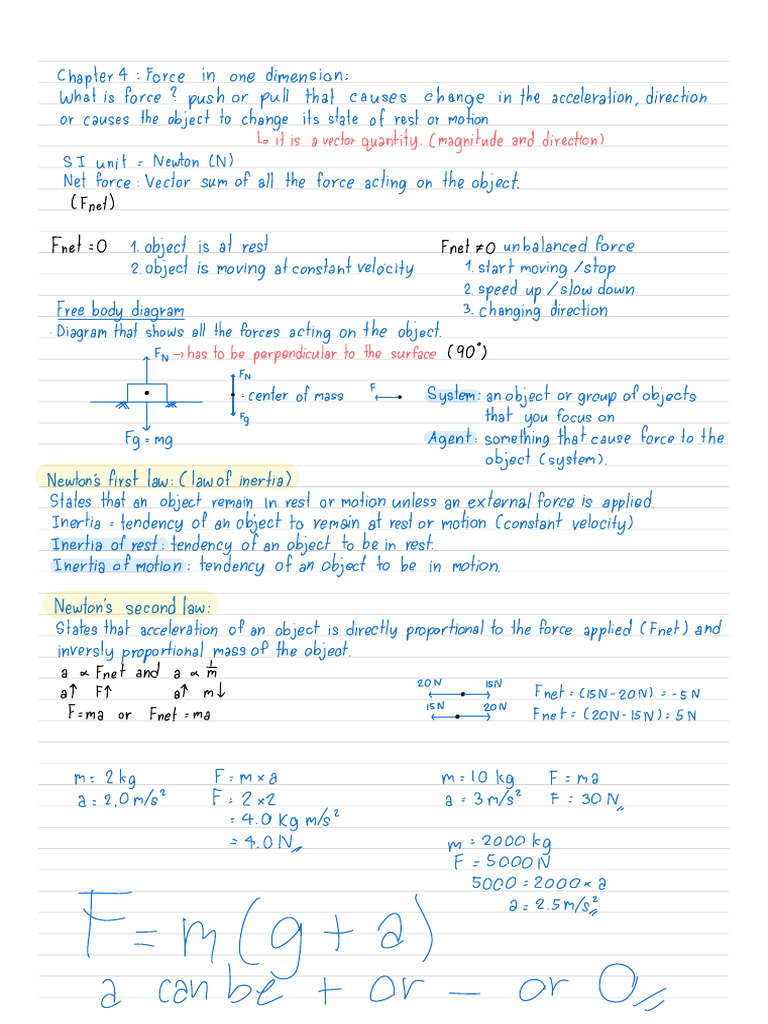 Chapter 4 : Force in one dimension:
What is force ? push or pull that causes change in the acceleration, direction
or causes the object to change its state of rest or motion
↳ it is a vector quantity. (magnitude and direction)
SI unit = Newton (N)
Net force : Vector sum of all the force acting on the object.
(Fnet)
Fnet = 0 1. object is at rest
2. object is moving at constant velocity
Fnet ≠ 0 unbalanced force
1. start moving / stop
2. speed up / slow down
3. changing direction
Free body diagram
· Diagram that shows all the forces acting on the object.
FN → has to be perpendicular to the surface (90°)
FN
= center of mass
Fg
F
Fg = mg
System: an object or group of objects
that you focus on
Agent: something that cause force to the
object (system).
Newton's first law: (law of inertia)
States that an object remain in rest or motion unless an external force is applied.
Inertia = tendency of an object to remain at rest or motion (constant velocity)
Inertia of rest : tendency of an object to be in rest.
Inertia of motion : tendency of an object to be in motion.
Newton's second law:
States that acceleration of an object is directly proportional to the force applied (Fnet) and
inversly proportional mass of the object.
a ∝ Fnet and a ∝ 1/m
a↑ F↑ a↑ m↓
F=ma or Fnet = ma
20N 15N Fnet = (15N - 20N) = -5N
15N 20N Fnet = (20N - 15N) = 5N
m = 2 kg
a = 2.0 m/s²
F = m × a
F = 2 × 2
= 4.0 kg m/s²
= 4.0 N
m = 10 kg F = ma
a = 3 m/s² F = 30 N
m = 2000 kg
F = 5000 N
5000 = 2000 × a
a = 2.5 m/s²
F = m (g + a)
a can be + or - or 0